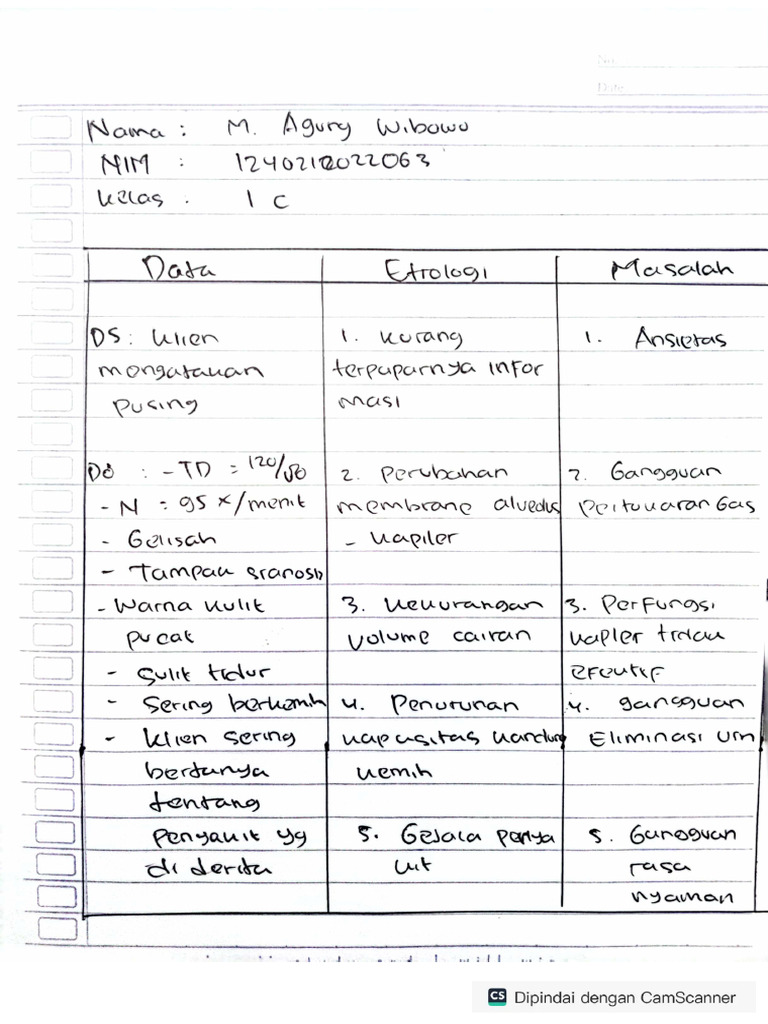 No.
Date
Nama : M. Agung Wibowo
NIM : 1240212022063
Kelas : 1 C
Data Etiologi Masalah
DS : Klien 1. Kurang 1. Ansietas
mengatakan terpaparnya infor
pusing masi
DO : - TD = 120/80 2. Perubahan 2. Gangguan
- N = 95 x/menit membrane alveolus Pertukaran Gas
- Gelisah - kapiler
- Tampak sianosis
- Warna kulit 3. Kekurangan 3. Perfungsi
pucat volume cairan kapiler tidak
- Sulit tidur efektif
- Sering berkemih 4. Penurunan 4. gangguan
- Klien sering kapasitas kandung Eliminasi urin
bertanya kemih
tentang
penyakit yg 5. Gejala penya 5. Gangguan
di derita kit rasa
nyaman
CS Dipindai dengan CamScanner